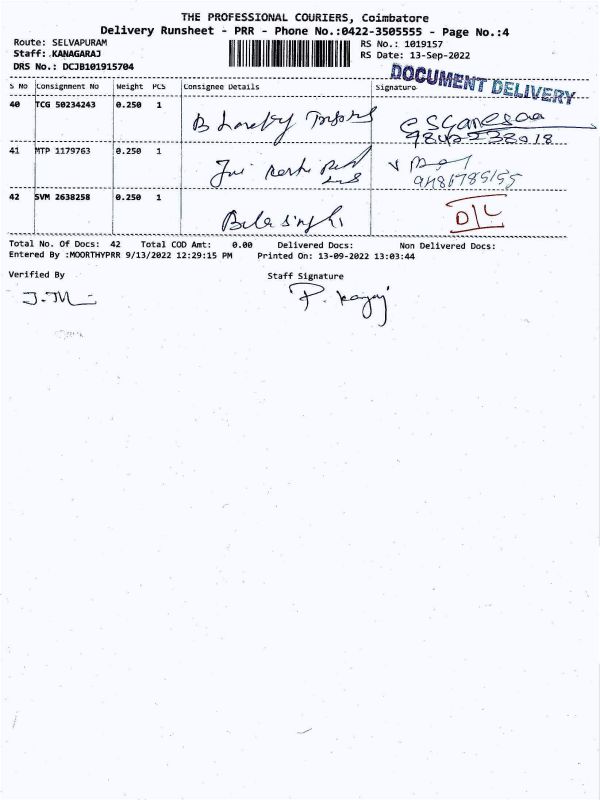 THE PROFESSIONAL COURIERS, Coimbatore
Delivery Runsheet - PRR - Phone No.:0422-3505555 - Page No.:4
Route: SELVAPURAM
RS No.: 1019157
Staff:.KANAGARAJ
RS Date: 13-Sep-2022
DRS No.: DCJB101915704
DOCUMENT DELIVERY
S No Consignment No Weight PCS Consignee Details Signature
40 TCG 50234243 0.250 1 B
41 MTP 1179763 0.250 1
42 SVM 2638258 0.250 1 D/L
Total No. Of Docs: 42 Total COD Amt: 0.00 Delivered Docs: Non Delivered Docs:
Entered By :MOORTHYPRR 9/13/2022 12:29:15 PM Printed On: 13-09-2022 13:03:44
Verified By Staff Signature